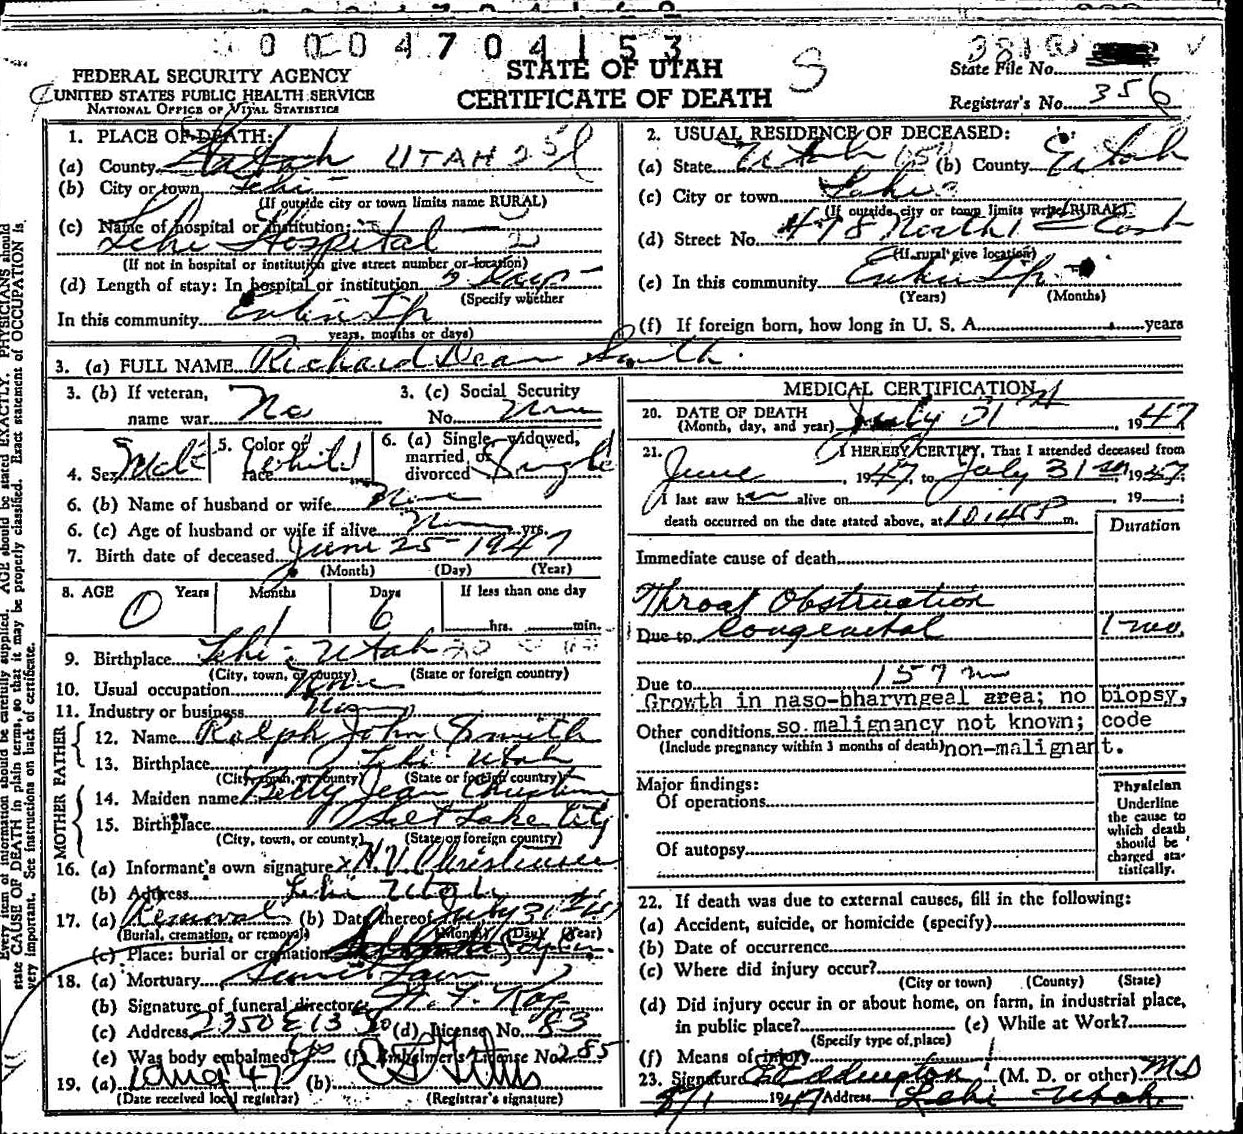 0004704153
3810
FEDERAL SECURITY AGENCY
UNITED STATES PUBLIC HEALTH SERVICE
NATIONAL OFFICE OF VITAL STATISTICS
STATE OF UTAH
CERTIFICATE OF DEATH
S
State File No.
Registrar's No. 356
Every item of information should be carefully supplied. AGE should be stated EXACTLY. PHYSICIANS should
state CAUSE OF DEATH in plain terms, so that it may be properly classified. Exact statement of OCCUPATION is
very important. See instructions on back of certificate.
1. PLACE OF DEATH:
(a) County UTAH 25
(b) City or town Lehi
(If outside city or town limits name RURAL)
(c) Name of hospital or institution:
Lehi Hospital
(If not in hospital or institution give street number or location)
(d) Length of stay: In hospital or institution days
(Specify whether
In this community Entire Life
years, months or days)
2. USUAL RESIDENCE OF DECEASED:
(a) State Utah (b) County Utah
(c) City or town Lehi
(If outside city or town limits write RURAL)
(d) Street No. 478 North 1 East
(If rural give location)
(e) In this community Entire Life
(Years) (Months)
(f) If foreign born, how long in U. S. A. years
3. (a) FULL NAME Richard Dean Smith
3. (b) If veteran, name war No
3. (c) Social Security No. None
4. Sex Male
5. Color or race White
6. (a) Single, widowed, married, or divorced Single
6. (b) Name of husband or wife None
6. (c) Age of husband or wife if alive None yrs.
7. Birth date of deceased June 25 1947
(Month) (Day) (Year)
8. AGE Years Months Days If less than one day
0 1 6 hrs. min.
9. Birthplace Lehi - Utah
(City, town, or county) (State or foreign country)
10. Usual occupation None
11. Industry or business None
FATHER
12. Name Ralph John Smith
13. Birthplace Lehi Utah
(City, town, or county) (State or foreign country)
MOTHER
14. Maiden name Betty Jean
15. Birthplace Salt Lake City
(City, town, or county) (State or foreign country)
16. (a) Informant's own signature x N.V. Christensen
(b) Address Lehi Utah
17. (a) Removal (b) Date thereof July 31 47
(Burial, cremation, or removal) (Month) (Day) (Year)
(c) Place: burial or cremation
18. (a) Mortuary
(b) Signature of funeral director
(c) Address 2350 E 13 So (d) License No. 83
(e) Was body embalmed? Yes (f) Embalmer's License No. 285
19. (a) 1 Aug 47 (b)
(Date received local registrar) (Registrar's signature)
MEDICAL CERTIFICATION
20. DATE OF DEATH
(Month, day, and year) July 31 st, 1947
21. I HEREBY CERTIFY, That I attended deceased from
June, 1947, to July 31 st, 1947.
I last saw h alive on , 19 ;
death occurred on the date stated above, at 10:45 P m.
Duration
Immediate cause of death
Throat Obstruction
Due to Congenital 1 mo.
Due to 157 m
Growth in naso-bharyngeal area; no biopsy,
Other conditions so malignancy not known; code
(Include pregnancy within 3 months of death) non-malignant.
Major findings:
Of operations
Of autopsy
Physician
Underline
the cause to
which death
should be
charged sta-
tistically.
22. If death was due to external causes, fill in the following:
(a) Accident, suicide, or homicide (specify)
(b) Date of occurrence
(c) Where did injury occur?
(City or town) (County) (State)
(d) Did injury occur in or about home, on farm, in industrial place,
in public place? (e) While at Work?
(Specify type of place)
(f) Means of injury
23. Signature E Eddington (M. D. or other) MD
8/1 1947 Address Lehi Utah